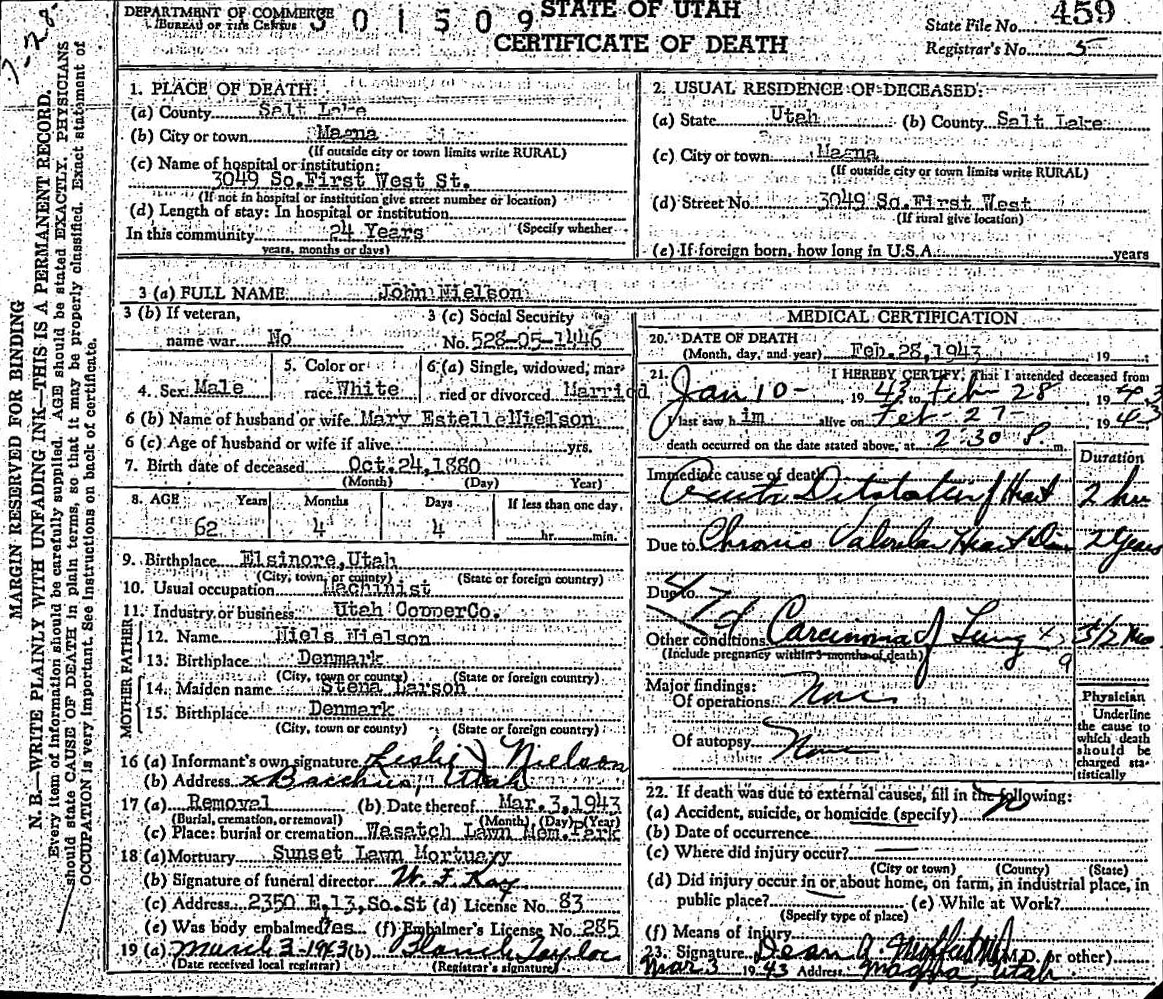 7-28-
MARGIN RESERVED FOR BINDING
N. B.—WRITE PLAINLY WITH UNFADING INK—THIS IS A PERMANENT RECORD.
Every item of information should be carefully supplied. AGE should be stated EXACTLY. PHYSICIANS
should state CAUSE OF DEATH in plain terms, so that it may be properly classified. Exact statement of
OCCUPATION is very important. See Instructions on back of certificate.
DEPARTMENT OF COMMERCE
BUREAU OF THE CENSUS
301509
STATE OF UTAH
CERTIFICATE OF DEATH
State File No. 459
Registrar's No. 5
1. PLACE OF DEATH:
(a) County Salt Lake
(b) City or town Magna
(If outside city or town limits write RURAL)
(c) Name of hospital or institution:
3049 So. First West St.
(If not in hospital or institution give street number or location)
(d) Length of stay: In hospital or institution
In this community 24 Years (Specify whether
years, months or days)
2. USUAL RESIDENCE OF DECEASED:
(a) State Utah (b) County Salt Lake
(c) City or town Magna
(If outside city or town limits write RURAL)
(d) Street No. 3049 So. First West
(If rural give location)
(e) If foreign born, how long in U.S.A. years
3 (a) FULL NAME John Nielson
3 (b) If veteran,
name war No
3 (c) Social Security
No. 528-05-1446
4. Sex Male
5. Color or
race White
6 (a) Single, widowed, mar
ried or divorced Married
6 (b) Name of husband or wife Mary Estelle Nielson
6 (c) Age of husband or wife if alive yrs.
7. Birth date of deceased Oct. 24, 1880
(Month) (Day) Year)
8. AGE Years Months Days If less than one day
62 4 4 hr. min.
9. Birthplace Elsinore, Utah
(City, town, or county) (State or foreign country)
10. Usual occupation Machinist
11. Industry or business Utah Copper Co.
FATHER
12. Name Niels Nielson
13. Birthplace Denmark
(City, town or county) (State or foreign country)
MOTHER
14. Maiden name Stena Larson
15. Birthplace Denmark
(City, town or county) (State or foreign country)
16 (a) Informant's own signature Leslie J Nielson
(b) Address x Bacchus, Utah
17 (a) Removal (b) Date thereof Mar. 3, 1943
(Burial, cremation, or removal) (Month) (Day) (Year)
(c) Place: burial or cremation Wasatch Lawn Mem. Park
18 (a) Mortuary Sunset Lawn Mortuary
(b) Signature of funeral director W. F. Kay
(c) Address 2350 E. 13, So. St (d) License No. 83
(e) Was body embalmed? Yes (f) Embalmer's License No. 285
19 (a) March 3-1943 (b) Taylor
(Date received local registrar) (Registrar's signature)
MEDICAL CERTIFICATION
20. DATE OF DEATH
(Month, day, and year) Feb. 28, 1943 19
21. I HEREBY CERTIFY, That I attended deceased from
Jan 10- 1943 to Feb 28 1943
I last saw him alive on Feb- 27- 1943
death occurred on the date stated above, at 2:30 P m.
Duration
Immediate cause of death
Acute Dilatation of Heart 2 hrs
Due to Chronic Valvular Heart Dis 2 Years
Due to
47d
Other conditions Carcinoma of Lung
(Include pregnancy within 3 months of death)
Major findings:
Of operations None
Of autopsy None
Physician
Underline
the cause to
which death
should be
charged sta-
tistically
22. If death was due to external causes, fill in the following:
(a) Accident, suicide, or homicide (specify) no
(b) Date of occurrence
(c) Where did injury occur?
(City or town) (County) (State)
(d) Did injury occur in or about home, on farm, in industrial place, in
public place? (e) While at Work?
(Specify type of place)
(f) Means of injury
23. Signature Dean A. Moffat MD (M.D. or other)
Mar 3 1943 Address Magna, Utah